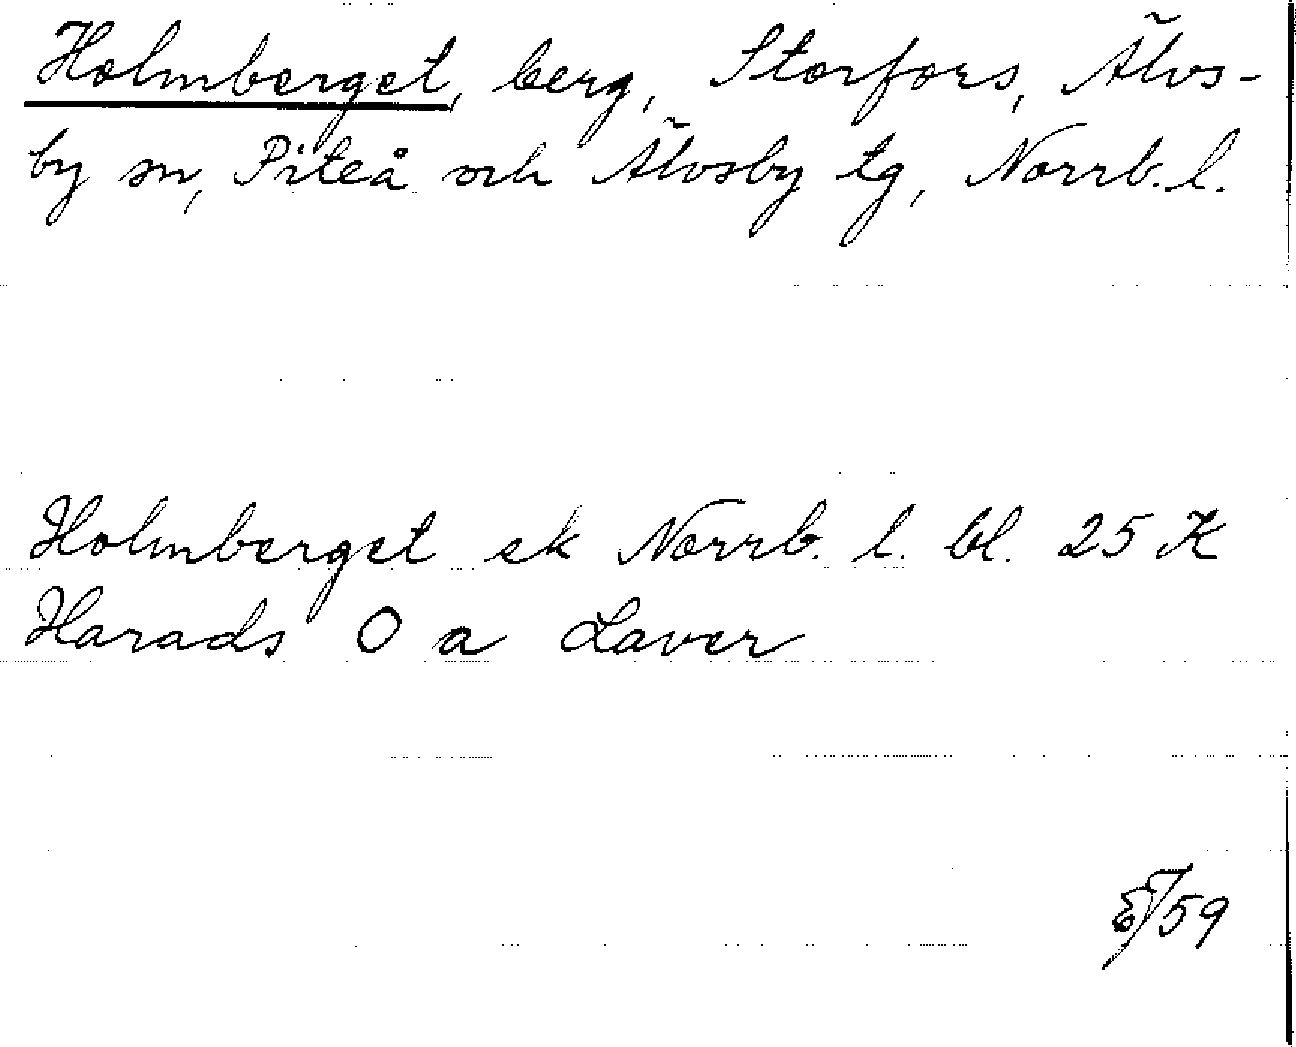 Holmberget, berg, Storfors, Älvs-
by sn, Piteå och Älvsby tg, Norrb. l.
Holmberget ek Norrb. l. bl. 25 K
Harads O a Laver
/59